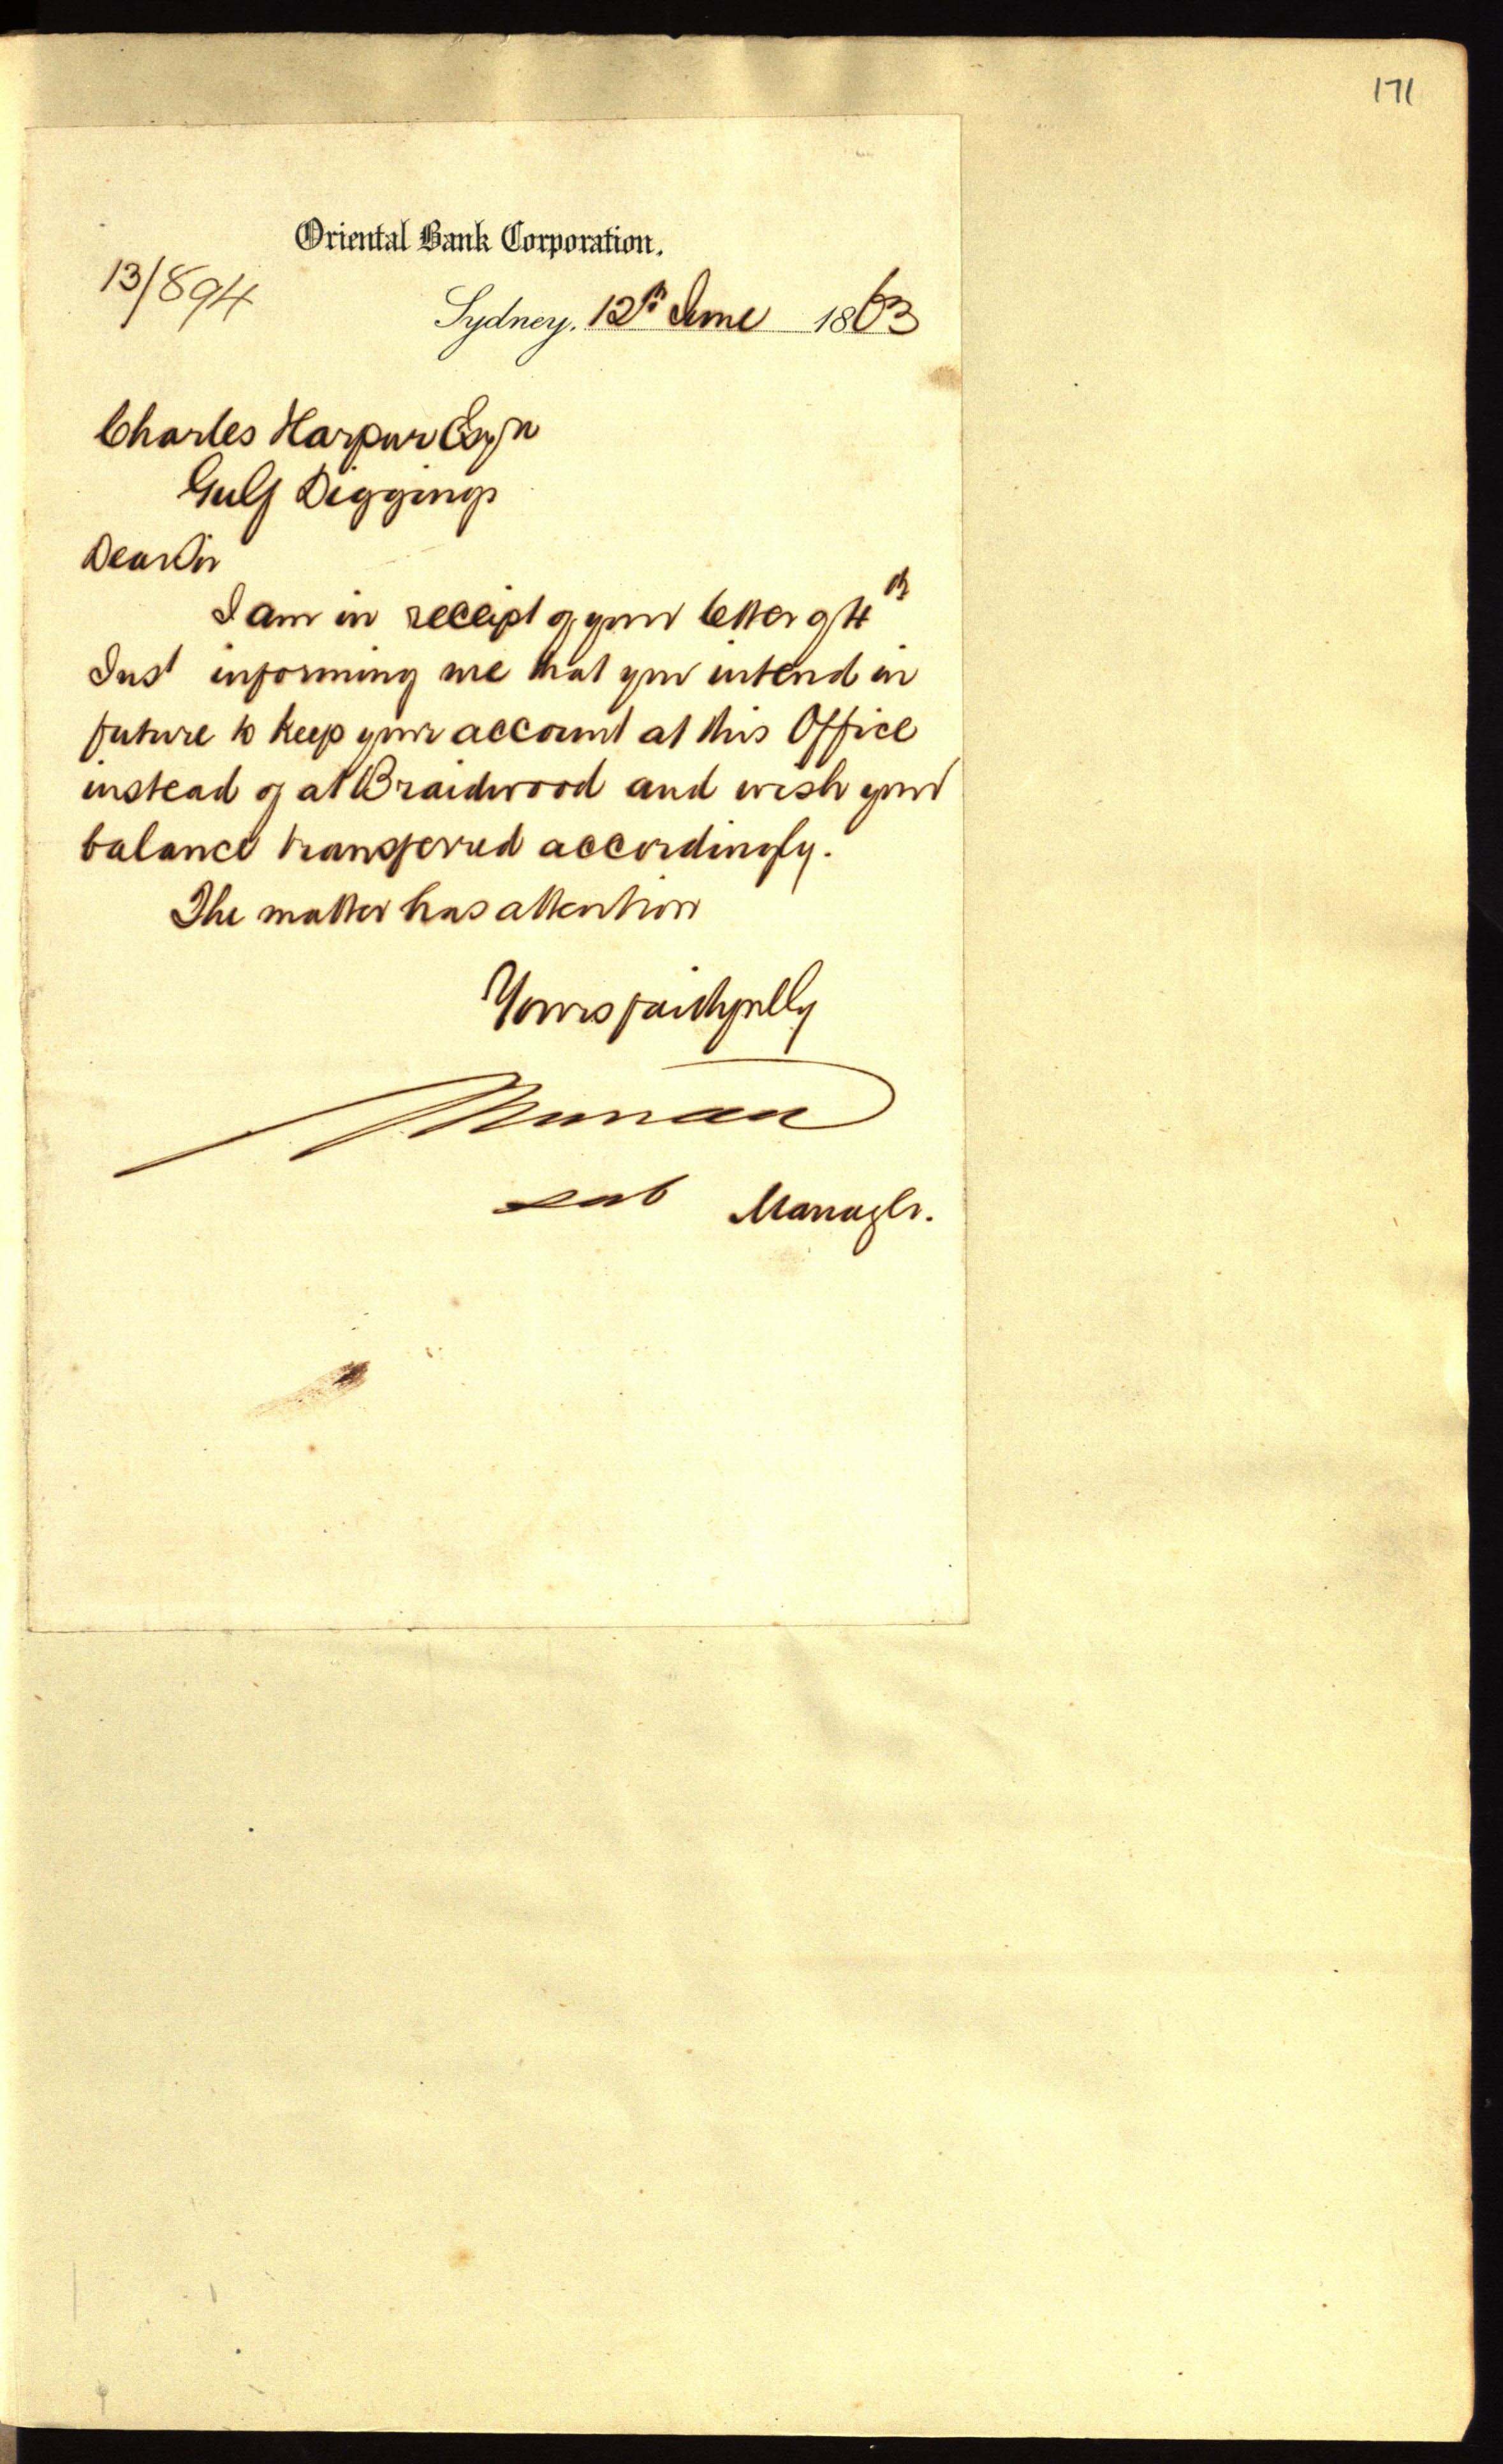 171
Oriental Bank Corporation.
13/894
Sydney, 12th June 1863
Charles Harpur Esqr
Gulf Diggings
Dear Sir
I am in receipt of your letter of 4th
Inst informing me that you intend in
future to keep your account at this Office
instead of at Braidwood and wish your
balance transferred accordingly.
The matter has attention
Yours faithfully
sub Manager.